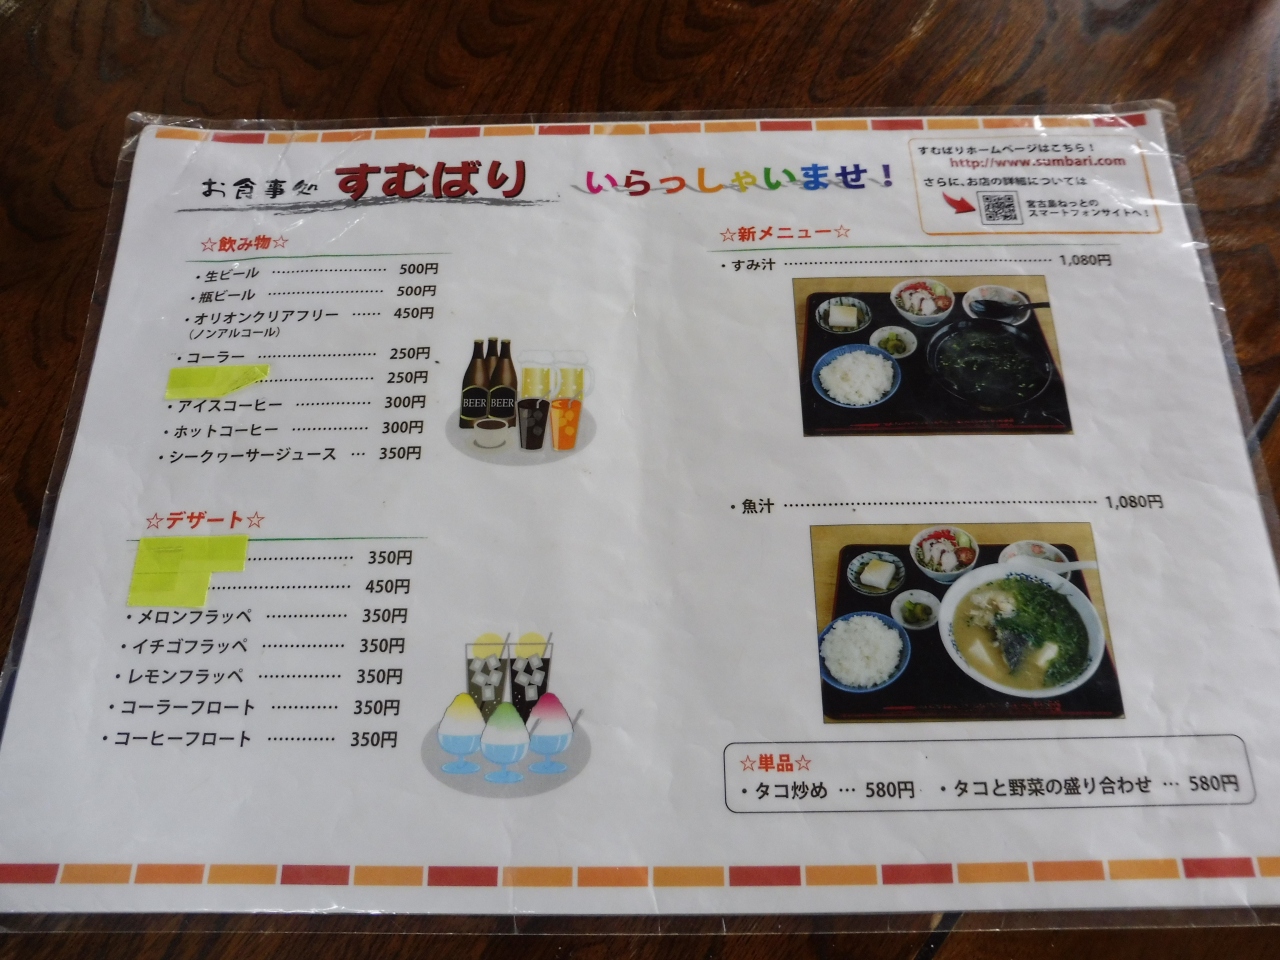 お食事処 すむばり いらっしゃいませ！
すむばりホームページはこちら！
http://www.sumbari.com
さらに、お店の詳細については
宮古島ねっとの
スマートフォンサイトへ！
☆飲み物☆
・生ビール ……………………… 500円
・瓶ビール ……………………… 500円
・オリオンクリアフリー …… 450円
（ノンアルコール）
・コーラー ……………………… 250円
……………………… 250円
・アイスコーヒー ……………… 300円
・ホットコーヒー ……………… 300円
・シークヮーサージュース … 350円
BEER BEER
☆デザート☆
……………………… 350円
……………………… 450円
・メロンフラッペ ……………… 350円
・イチゴフラッペ ……………… 350円
・レモンフラッペ ……………… 350円
・コーラーフロート ………… 350円
・コーヒーフロート ………… 350円
☆新メニュー☆
・すみ汁 ……………………………………… 1,080円
・魚汁 ……………………………………… 1,080円
☆単品☆
・タコ炒め … 580円 ・タコと野菜の盛り合わせ … 580円